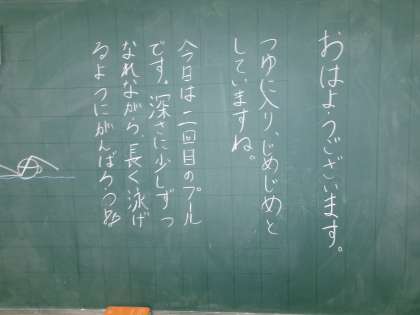 おはようございます。
つゆに入り、じめじめと
していますね。
今日は二回目のプール
です。深さに少しずつ
なれながら、長く泳げ
るようにがんばろうね